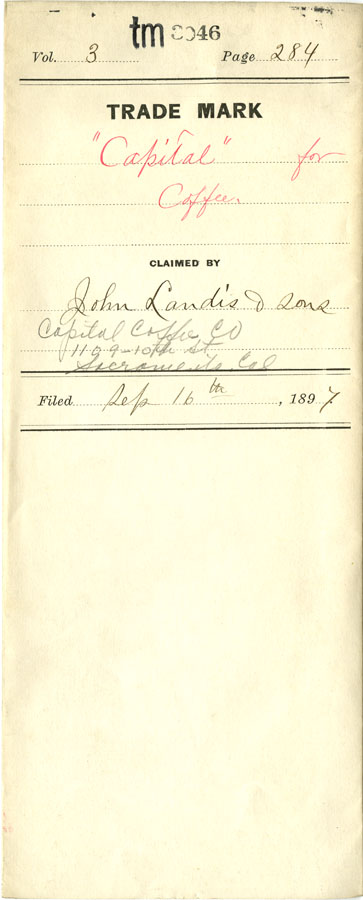 tm 3046
Vol. 3 Page 284
TRADE MARK
"Capital" for
Coffee.
CLAIMED BY
John Landis & Sons
Capital Coffee Co
1109-10th St
Sacramento Cal
Filed Sep 16th, 1897.